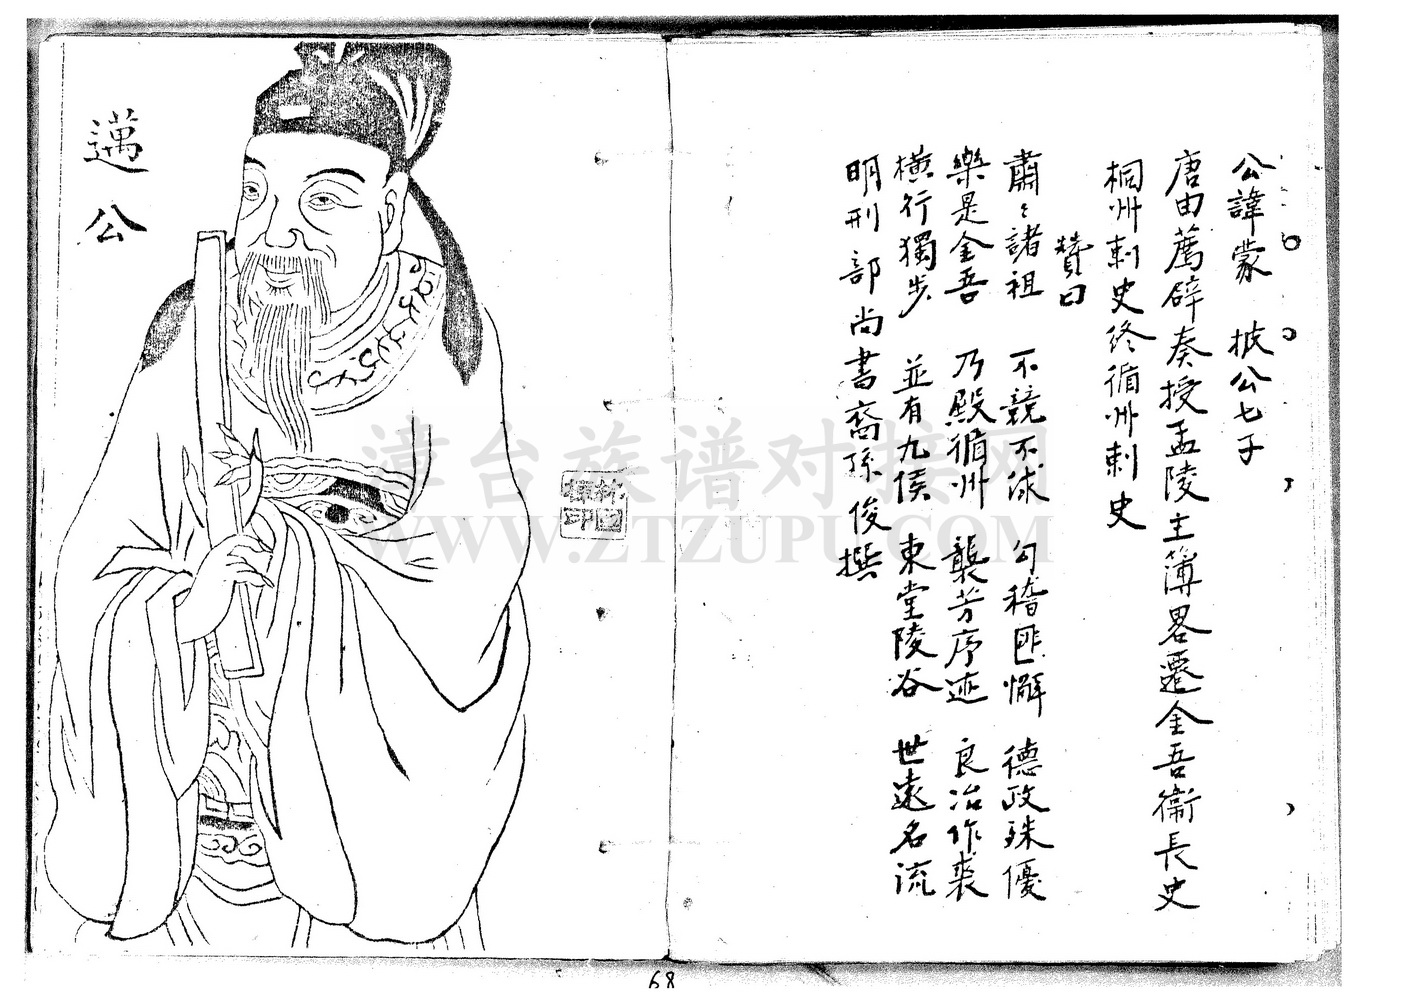 公諱蒙 披公七子
唐由薦辟奏授孟陵主簿畧遷金吾衛長史
桐州刺史終循州刺史
贊曰
肅〻諸祖 不競不求 勾稽匪懈 德政殊優
樂是金吾 乃殿循州 襲芳序迹 良冶作裘
橫行獨步 並有九侯 東堂陵谷 世遠名流
明刑部尚書裔孫俊撰
邁公
漳台族谱对接网
WWW.ZTZUPU.COM
68